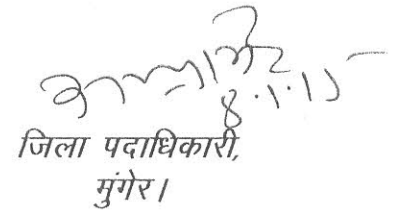 8.1.15
जिला पदाधिकारी,
मुंगेर।